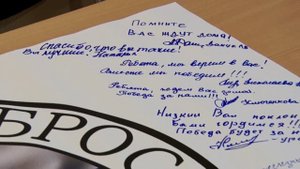 Помните
Вас ждут дома!
Спасибо, что вы такие!
Вы лучшие.
Ребята, мы верим в вас!
Вместе мы победим!!!
Ребята, ждем вас дома!
Победа за нами!!!
Низкий Вам поклон
Вами гордимся!!!
Победа будет за
БРОС